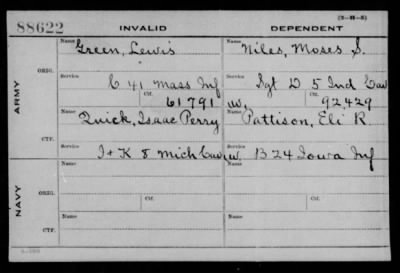 (3-H-5)
88622 INVALID DEPENDENT
Name Name
Green, Lewis Niles, Moses S.
ORIG. Service Service
C 41 Mass Inf Sgt D 5 Ind Cav
Ctf. 61791 W. Ctf. 92429
ARMY
Name Name
Quick, Isaac Perry Pattison, Eli R.
CTF. Service Service
I + K 8 Mich Cav W. B 24 Iowa Inf
Name Name
ORIG.
Service Ctf. Service Ctf.
NAVY
Name Name
CTF.